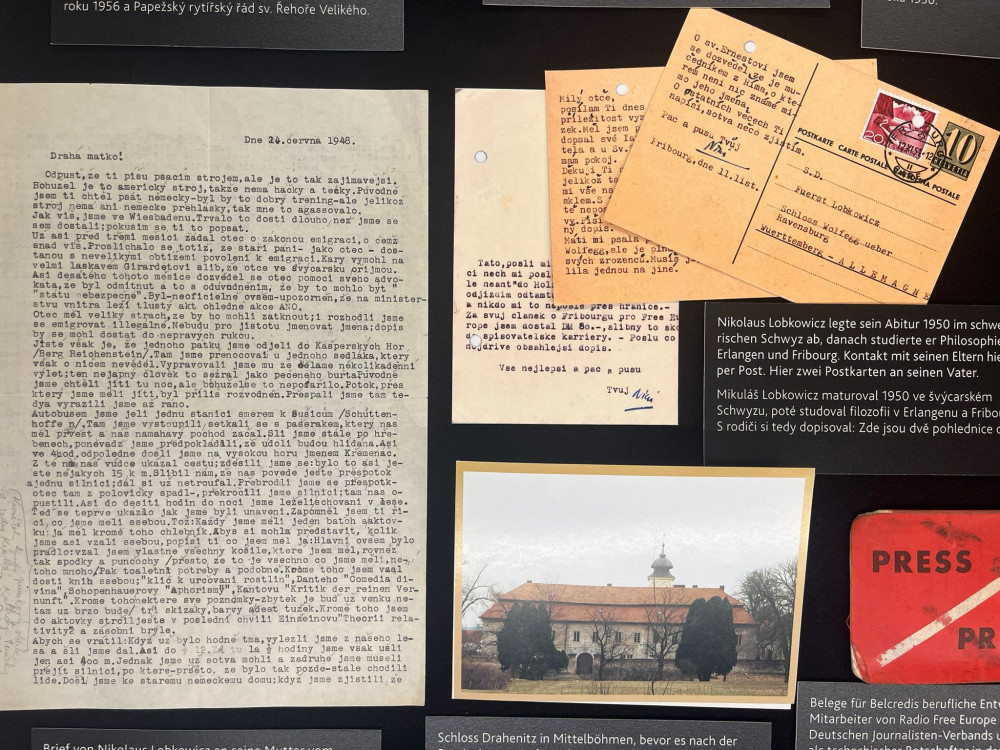 roku 1956 a Papežský rytířský řád sv. Řehoře Velikého.
Dne 24.června 1948.
Draha matko!
Odpust,ze ti pisu psacim strojem,ale je to tak zajimavejsi.
Hohuzel je to americky stroj,takze nema hacky a tecky.Původně
jsem ti chtel psát německy-byl by to dobry trening-ale jelikoz
stroj nema ani nemecke prehlásky,tak mne to agassovalo.
Jak vis,jsme ve Wiesbadenu.Trvalo to dosti dlouho,než jsme se
sem dostali;pokusim se ti to popsat.
Uz asi pred třemi mesici žádal otec o zákonou emigraci,o čemz
snad vis.Proslichalo se totiz, ze staří pani- jako otec - dos-
tanou s nevelikými obtizemi povolení k emigraci.Kary vymohl na
velmi laskavem Girardetovi slib,ze otce ve švýcarsku prijmou.
Asi desátého tohoto mesice dozvěděl se otec pomoci sveho advo-
kata,ze byl odmitnut a to s oduvodněním, ze by to mohlo být
"statu nebezpecne".Byl-neoficielne ovsem-upozornen,ze na minister-
stvu vnitra leží tlustý akt ohledne akce ANO.
Otec měl veliky strach,ze by ho mohli zatknout;i rozhodl jsme
se emigrovat illegalne.Nebudu pro jistotu jmenovat jmena;dopis
by se mohl dostat do nepravych rukou.
Jiste vsak je, že jednoho patku jsme odjeli do Kasperskych Hor
/Berg Reichenstein/.Tam jsme prenocovali u jednoho sedláka,ktery
vsak o nicem nevěděl.Vypravovali jsme mu ze děláme několikadenní
výlet;ten nejapny dlovek to sezral jako peceneho burta.Původně
jsme chtěli jíti tu noc,ale bohuzelse to nepodařilo.Potok,pres
ktery jsme meli jíti,byl prilis rozvodnen.Prespali jsme tam te-
dya vyrazili jsme az ráno.
Autobusem jsme jeli jednu stanici smerem k Susicum /Schutten-
hoffe n/.Tam jsme vystoupili,setkali se s paserakem,ktery nas
měl prevest a nas namahavy pochod zacal.Sli jsme stále po hře-
benech,poněvádz jsme predpokladali,ze udoli budou hlidana.Asi
ve 4hod.odpoledne došli jsme na vysokou horu jmenem Kremenac.
Z te na nás vudce ukazal cestu;zdesili jsme se:bylo to asi je-
ste nejakych 15 k m.Slibil nám,ze nas povede ještě přespotok
ajednu silnici;dál si uz netroufal.Prebrodli jsme se prespotk-
otec tam z polovicky spadl-,prekrocili jsme silnici;tam nas o-
pustili.Asi do desiti hodin do noci jsme leželischovani v lese.
Ted se teprve ukazlo jak jsme byli unaveni.Zapomněl jsem ti ři-
ci,co jsme meli ssebou.Toz:Kazdy jsme meli jeden batoh aaktov-
ku;ja mel kromě toho chlebnik.Abys si mohla predstavit, kolik
jsme asi vzali ssebou,popisi ti co jsem měl ja:Hlavni ovsem bylo
pradlo:vzal jsem vlastne vsechny kosile,ktere jsem měl,rovnez
tak spodky a puncochy /presto,ze to je vsechno co jsme meli,ne-
toho mnoho/Pak toaletni potreby a podobne.Krome toho jsem vzal
dosti knih ssebou;"klíc k urcovani rostlin",Danteho "Comedia di-
vina",Schopenhauerovy "Aphorismy",Kantovu "Kritik der reinen Ver-
nunft".Krome tohonektere sve poznamky-zbytek je bud uz venku,ne-
tam uz brzo bude/ tri skizaky,barvy adest tuzek.Krome toho jsem
do aktovky strciljeste v poslední chvíli Einseinovu"Theorii rela-
tivity"a zasobni bryle.
Abych se vratil:Kdyz uz bylo hodne tma,vylezli jsme z naseho le-
sa a šli jsme dal.Asi do tu la hodiny jsme vsak usli
jen asi 400 m.Jednak jsme uz sotva mohli a zadruhe jsme museli
prejit silnici,po ktere-presto, ze bylo tak pozde-stale chodili
lide.Dosli jsme ke staremu nemeckemu domu;kdyz jsme zjistili,ze
Tato,posli mi
ci nech mi posl
le neant"do Hol
odjizdim odtamt
a nikdo mi to neposle pres hranice.-
Za svuj clanek o Fribourgu pro Free Eu
rope jsem dostal DM 80.-,slibny to sko
do spisovatelske karriery. - Poslu co
nejdrive obsahlejsi dopis.
Vse nejlepsi a pac a pusu
Tvuj Niki
Milý otče,
posílam Ti dnes
příležitost vyz
zek.Měl jsem p
dopsal své la
tela a u Sv.
mam pokoj.
Děkuji Ti
jelikož ta
mi vše na
sklem.S
tě nepos
vy.Píši
ny dopis.
Mati mi psala
Wolfegg,ale je plně
svých vrozenců.Musía j
lila jednou na jine.
O sv.Ernestovi jsem
se dozvěděl,že je mu-
čedníkem z Říma,o kte-
rém není nic známé mi-
mo jeho jména.
O ostatních věcech Ti
napíši,sotva něco zjistím.
Pac a pusu Tvůj
Niki
Fribourg,dne 11.list.
POSTKARTE CARTE POSTALE CARTOLINA POSTALE
20
10
HELVETIA
S.D.
Fuerst Lobkowicz
Schloss Wolfegg ueber
Ravensburg
Wuerttemberg
- ALLEMAGNE
Nikolaus Lobkowicz legte sein Abitur 1950 im schwe
rischen Schwyz ab, danach studierte er Philosophie
Erlangen und Fribourg. Kontakt mit seinen Eltern hie
per Post. Hier zwei Postkarten an seinen Vater.
Mikuláš Lobkowicz maturoval 1950 ve švýcarském
Schwyzu, poté studoval filozofii v Erlangenu a Fribou
S rodiči si tedy dopisoval: Zde jsou dvě pohlednice o
PRESS
PR
Belege für Belcredis berufliche Entw
Mitarbeiter von Radio Free Europe
Deutschen Journalisten-Verbands u
Schloss Drahenitz in Mittelböhmen, bevor es nach der
Brief von Nikolaus Lobkowicz an seine Mutter vom